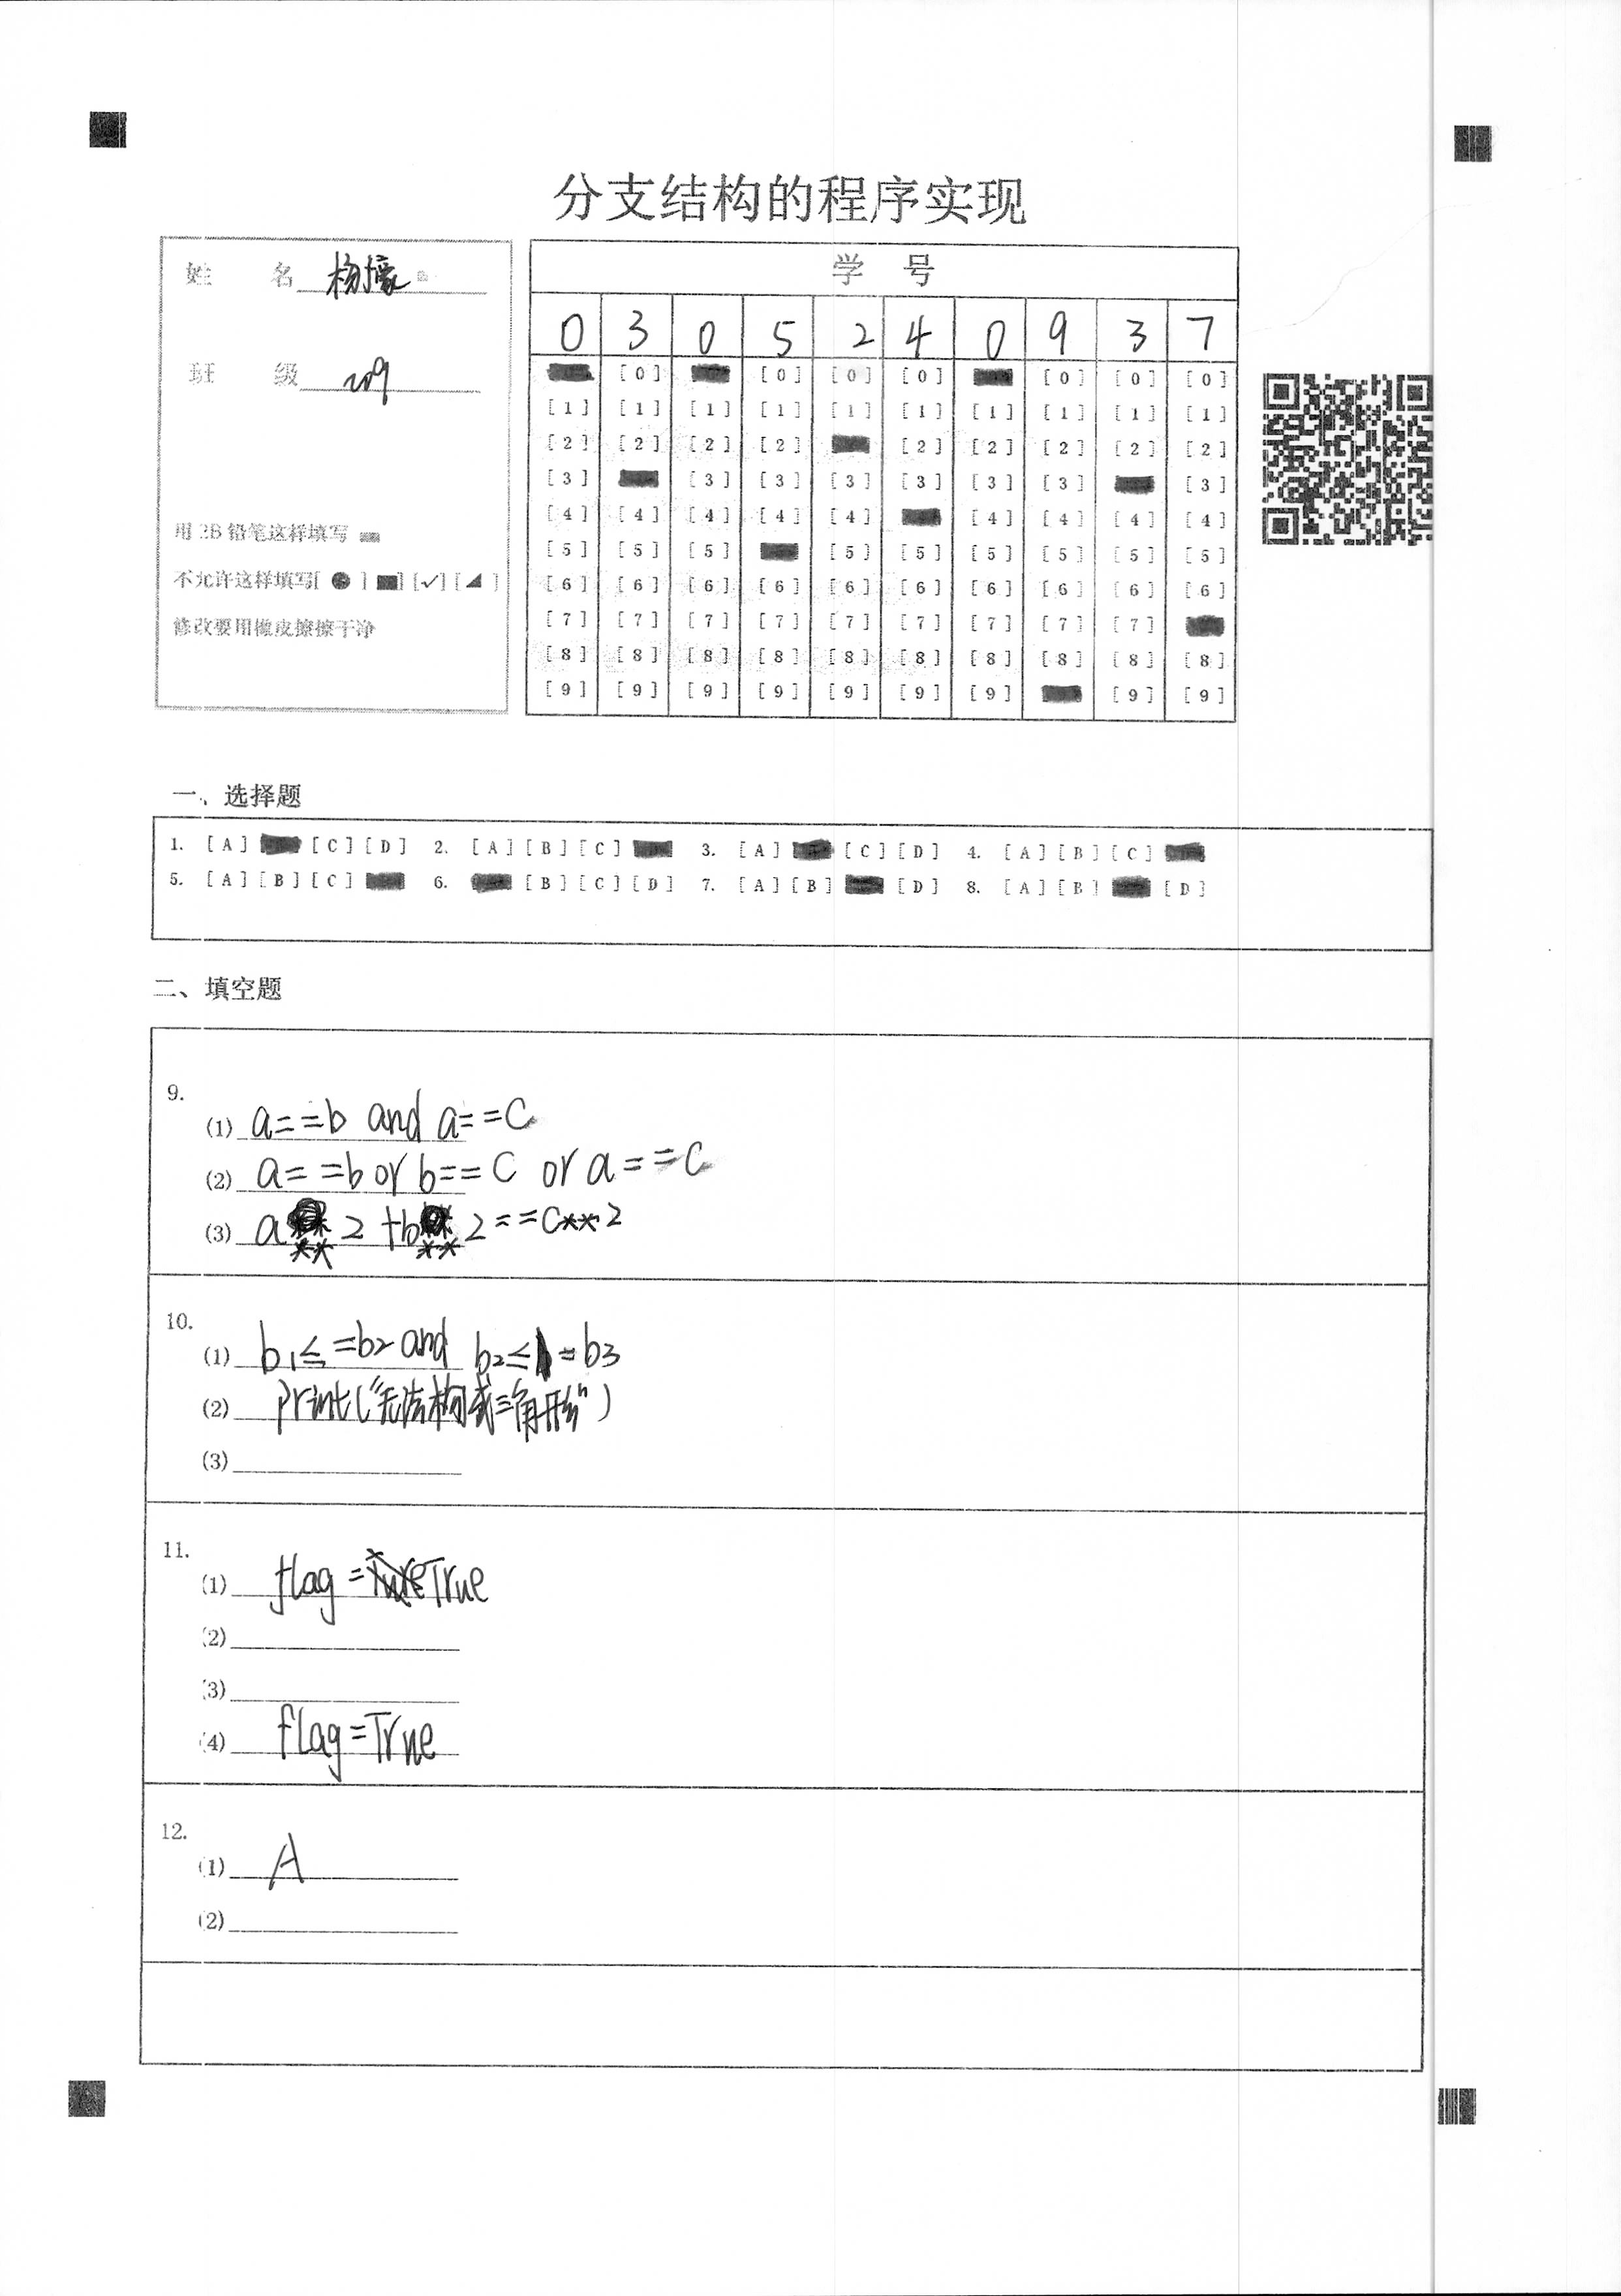 分支结构的程序实现
姓 名 杨
班 级 209
用 2B 铅笔这样填写
不允许这样填写[ ● ] ■] [✓] [◢ ]
修改要用橡皮擦擦干净
学 号
0 3 0 5 2 4 0 9 3 7
[0] [0] [0] [0] [0] [0] [0]
[1] [1] [1] [1] [1] [1] [1] [1] [1] [1]
[2] [2] [2] [2] [2] [2] [2] [2] [2]
[3] [3] [3] [3] [3] [3] [3] [3]
[4] [4] [4] [4] [4] [4] [4] [4] [4]
[5] [5] [5] [5] [5] [5] [5] [5] [5]
[6] [6] [6] [6] [6] [6] [6] [6] [6] [6]
[7] [7] [7] [7] [7] [7] [7] [7] [7]
[8] [8] [8] [8] [8] [8] [8] [8] [8] [8]
[9] [9] [9] [9] [9] [9] [9] [9] [9]
一、选择题
1. [A] [C] [D] 2. [A] [B] [C] 3. [A] [C] [D] 4. [A] [B] [C]
5. [A] [B] [C] 6. [B] [C] [D] 7. [A] [B] [D] 8. [A] [B] [D]
二、填空题
9.
(1) a==b and a==c
(2) a==b or b==c or a==c
(3) a**2+b**2==c**2
10.
(1) b1≤=b2 and b2≤=b3
(2) print("无法构成三角形")
(3)
11.
(1) flag=True
(2)
(3)
(4) flag=True
12.
(1) A
(2)